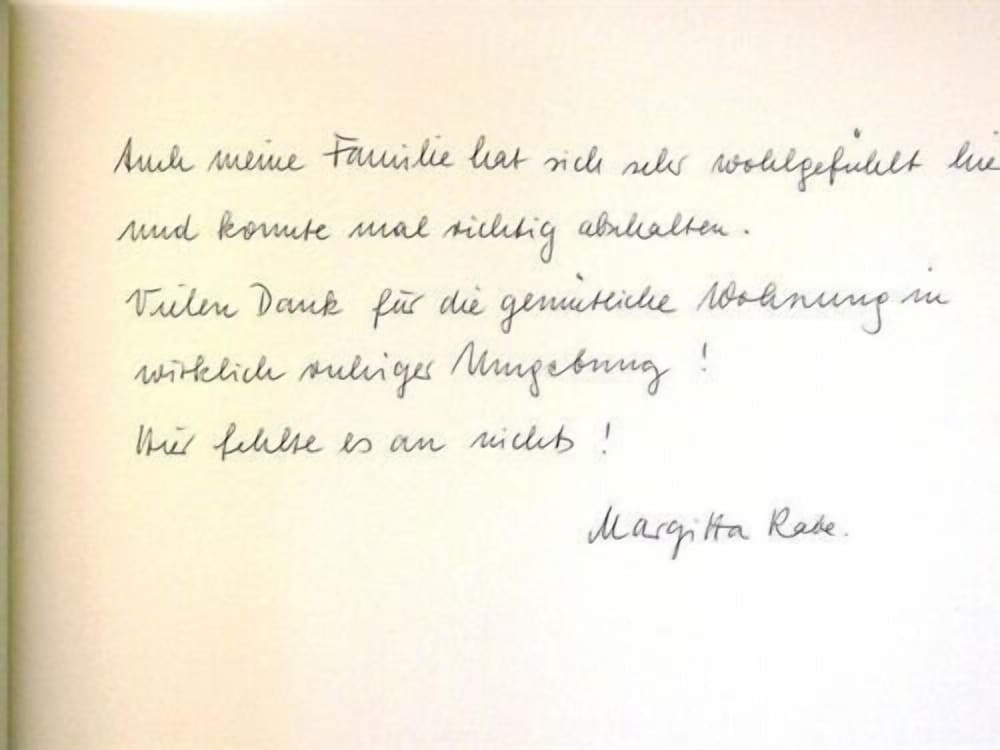 Auch meine Familie hat sich sehr wohlgefühlt hie
und konnte mal richtig abschalten.
Vielen Dank für die gemütliche Wohnung in
wirklich ruhiger Umgebung !
Hier fehlte es an nichts !
Margitta Rabe.